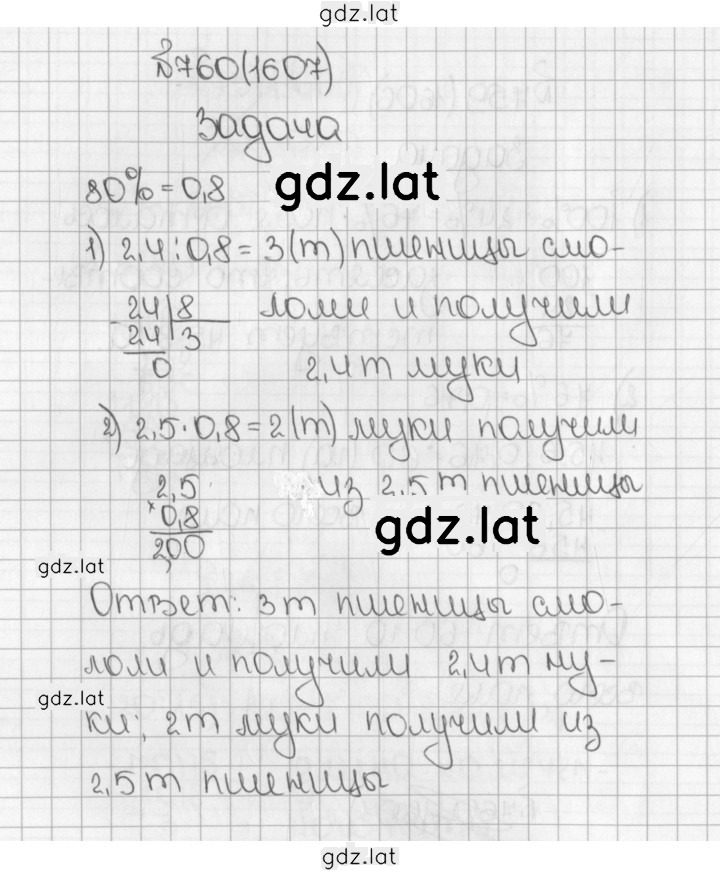 gdz.lat
№760(1607)
Задача
80% = 0,8
gdz.lat
1) 2,4 : 0,8 = 3(т) пшеницы смо-
24 | 8
лоли и получили
24 | 3
0
2,4т муки
2) 2,5 · 0,8 = 2(т) муки получили
2,5
из 2,5т пшеницы
× 0,8
2,00
gdz.lat
gdz.lat
Ответ: 3т пшеницы смо-
лоли и получили 2,4т му-
gdz.lat
ки; 2т муки получили из
2,5т пшеницы
gdz.lat